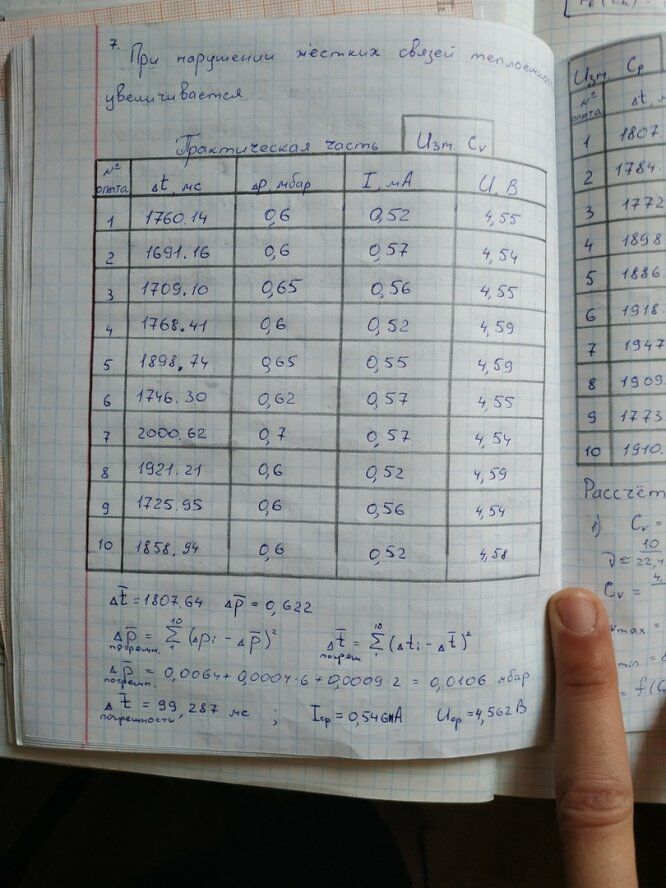 7. При нарушении жёстких связей
увеличивается.
Практическая часть Изм. Cv
№ опыта Δt, мс Δp, мбар I, мА U, В
1 1760.14 0,6 0,52 4,55
2 1691.16 0,6 0,57 4,54
3 1709.10 0,65 0,56 4,55
4 1768.41 0,6 0,52 4,59
5 1898.74 0,65 0,55 4,59
6 1746.30 0,62 0,57 4,55
7 2000.62 0,7 0,57 4,54
8 1921.21 0,6 0,52 4,59
9 1725.95 0,6 0,56 4,54
10 1858.94 0,6 0,52 4,58
Δt̅ = 1807.64 Δp̅ = 0,622
Δp̅ погрешн. = Σ₁¹⁰ (Δpi - Δp̅)² Δt̅ погреш = Σ₁¹⁰ (Δti - Δt̅)²
Δp̅ погрешн. = 0,0064 + 0,0004·6 + 0,0009·2 = 0,0106 мбар
Δt̅ погрешность = 99,287 мс ; Iср = 0,546мА Uср = 4,562 В
Изм. Cp
№ опыта Δt,
1 1807.
2 1784.
3 1772
4 1898
5 1886.
6 1918.
7 1947
8 1909
9 1773
10 1910.
Рассчёт
1) Cv =
ν ≈ 10/22,4
Cv =
max =
min =
= f(